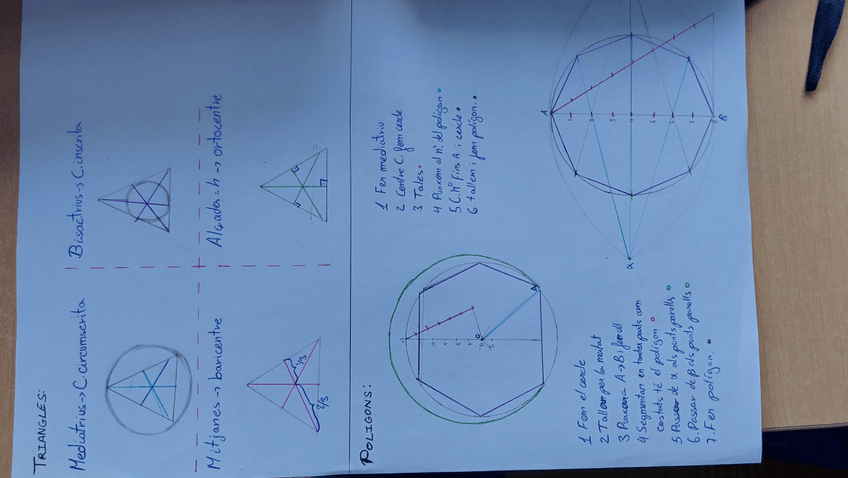 TRIANGLES:
Mediatrius -> C. circumscrita
Bisectrius -> C. inscrita
Mitjanes -> baricentre
Alçades = h -> ortocentre
2/3
1/3
POLIGONS:
1 Fem mediatriu
2 Centre C. fem cercle
3 Tales.
4 Punxem al nº del polígon.
5 C. nº fins A i cercle.
6 tallem i fem polígon.
1 Fem el cercle
2 Tallem per la meitat
3 Punxem a A->B i fem all
4 Segmentar en tantes parts com
costats té el polígon
5 Passar de α als punts parells
6. Passar de β als punts parells
7. Fer polígon.
A
B
α
A